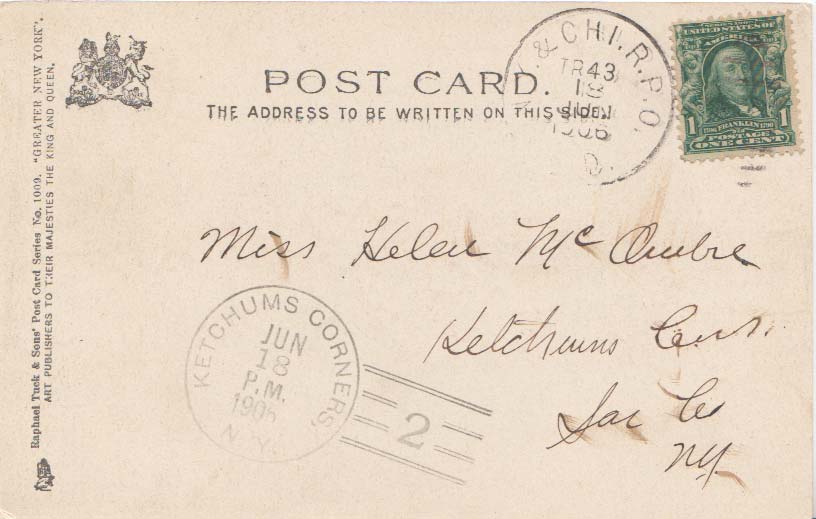 Raphael Tuck & Sons' Post Card Series No. 1009. "GREATER NEW YORK".
ART PUBLISHERS TO THEIR MAJESTIES THE KING AND QUEEN.
POST CARD.
THE ADDRESS TO BE WRITTEN ON THIS SIDE.
& CHI. R.P.O.
TR 43
18
JUN
1906
UNITED STATES OF
AMERICA
1 FRANKLIN 1
POSTAGE
ONE CENT
Miss Helen Mc
Ketchums Cors.
Sar Co
NY
KETCHUMS CORNERS,
JUN
18
P.M.
1906
N.Y.
2